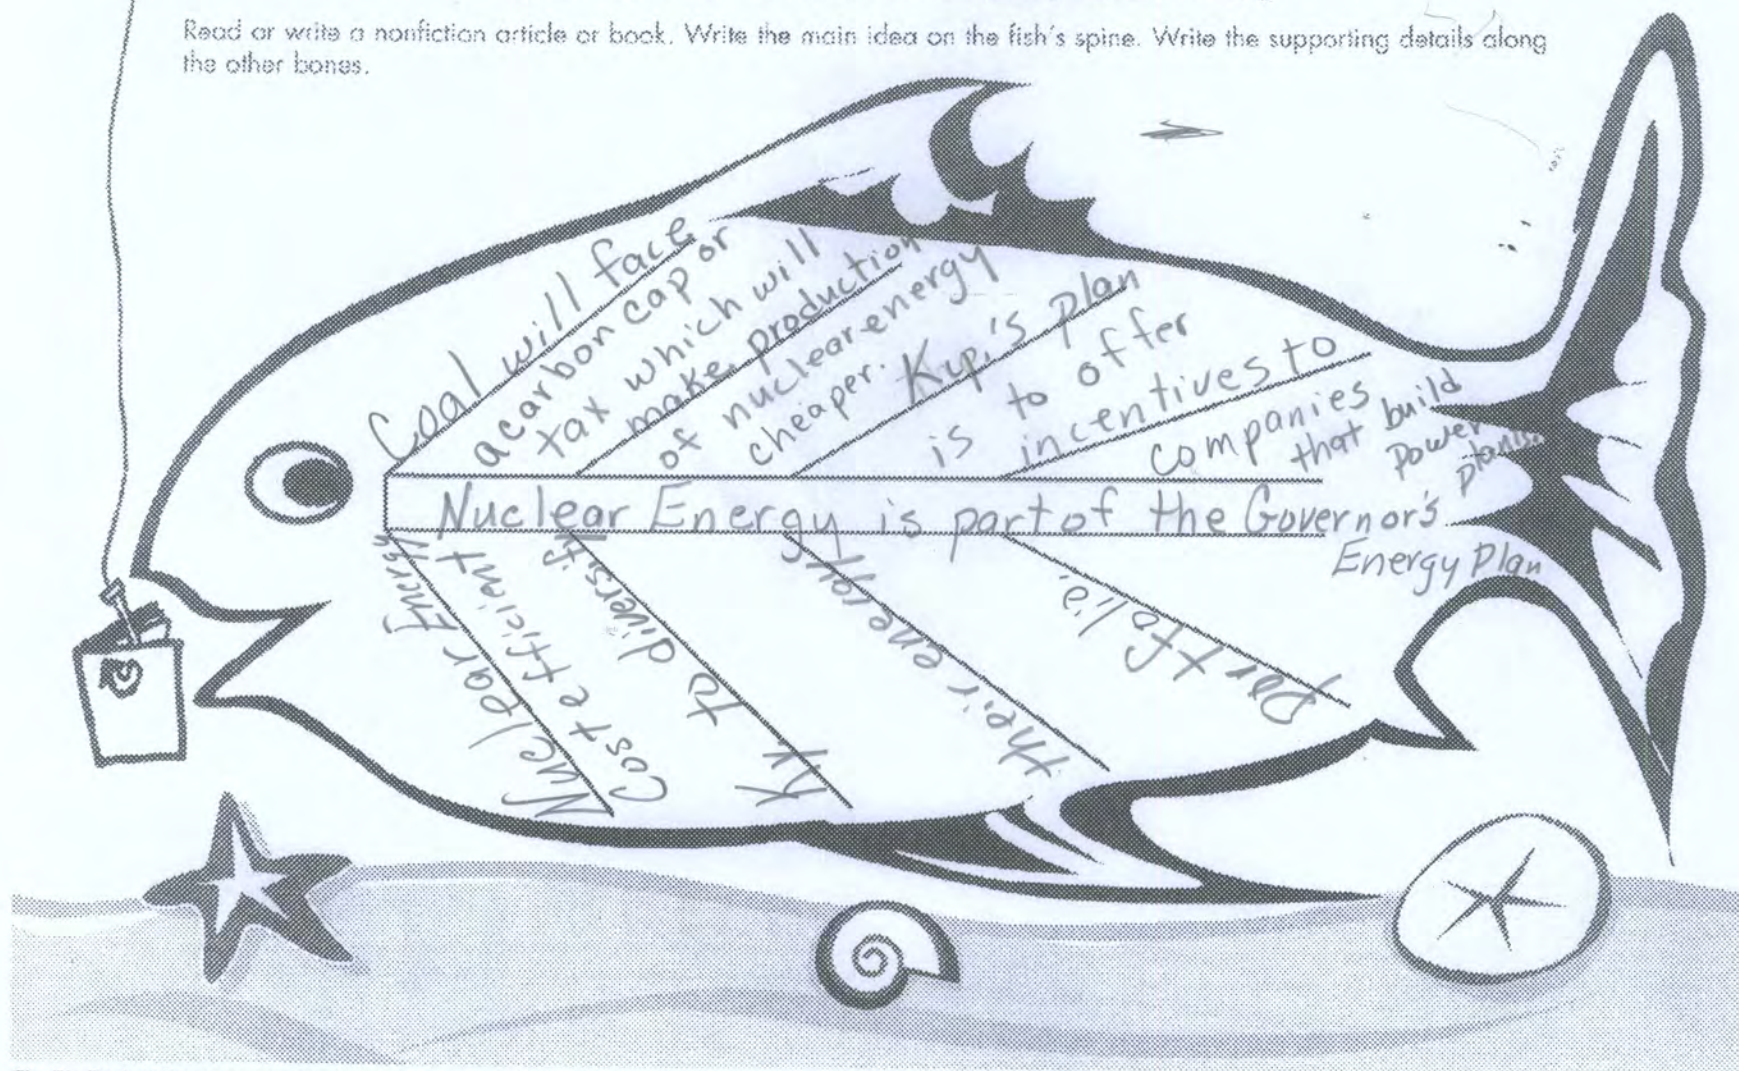 Read or write a nonfiction article or book. Write the main idea on the fish's spine. Write the supporting details along
the other bones.
Coal will face
a carbon cap or
tax which will
make production
of nuclear energy
cheaper.
Ky.'s plan
is to offer
incentives to
companies
that build
power
plants.
Nuclear Energy is part of the Governor's
Energy Plan
Nuclear Energy
Cost efficient
to diversify
Ky
their energy
portfolio.